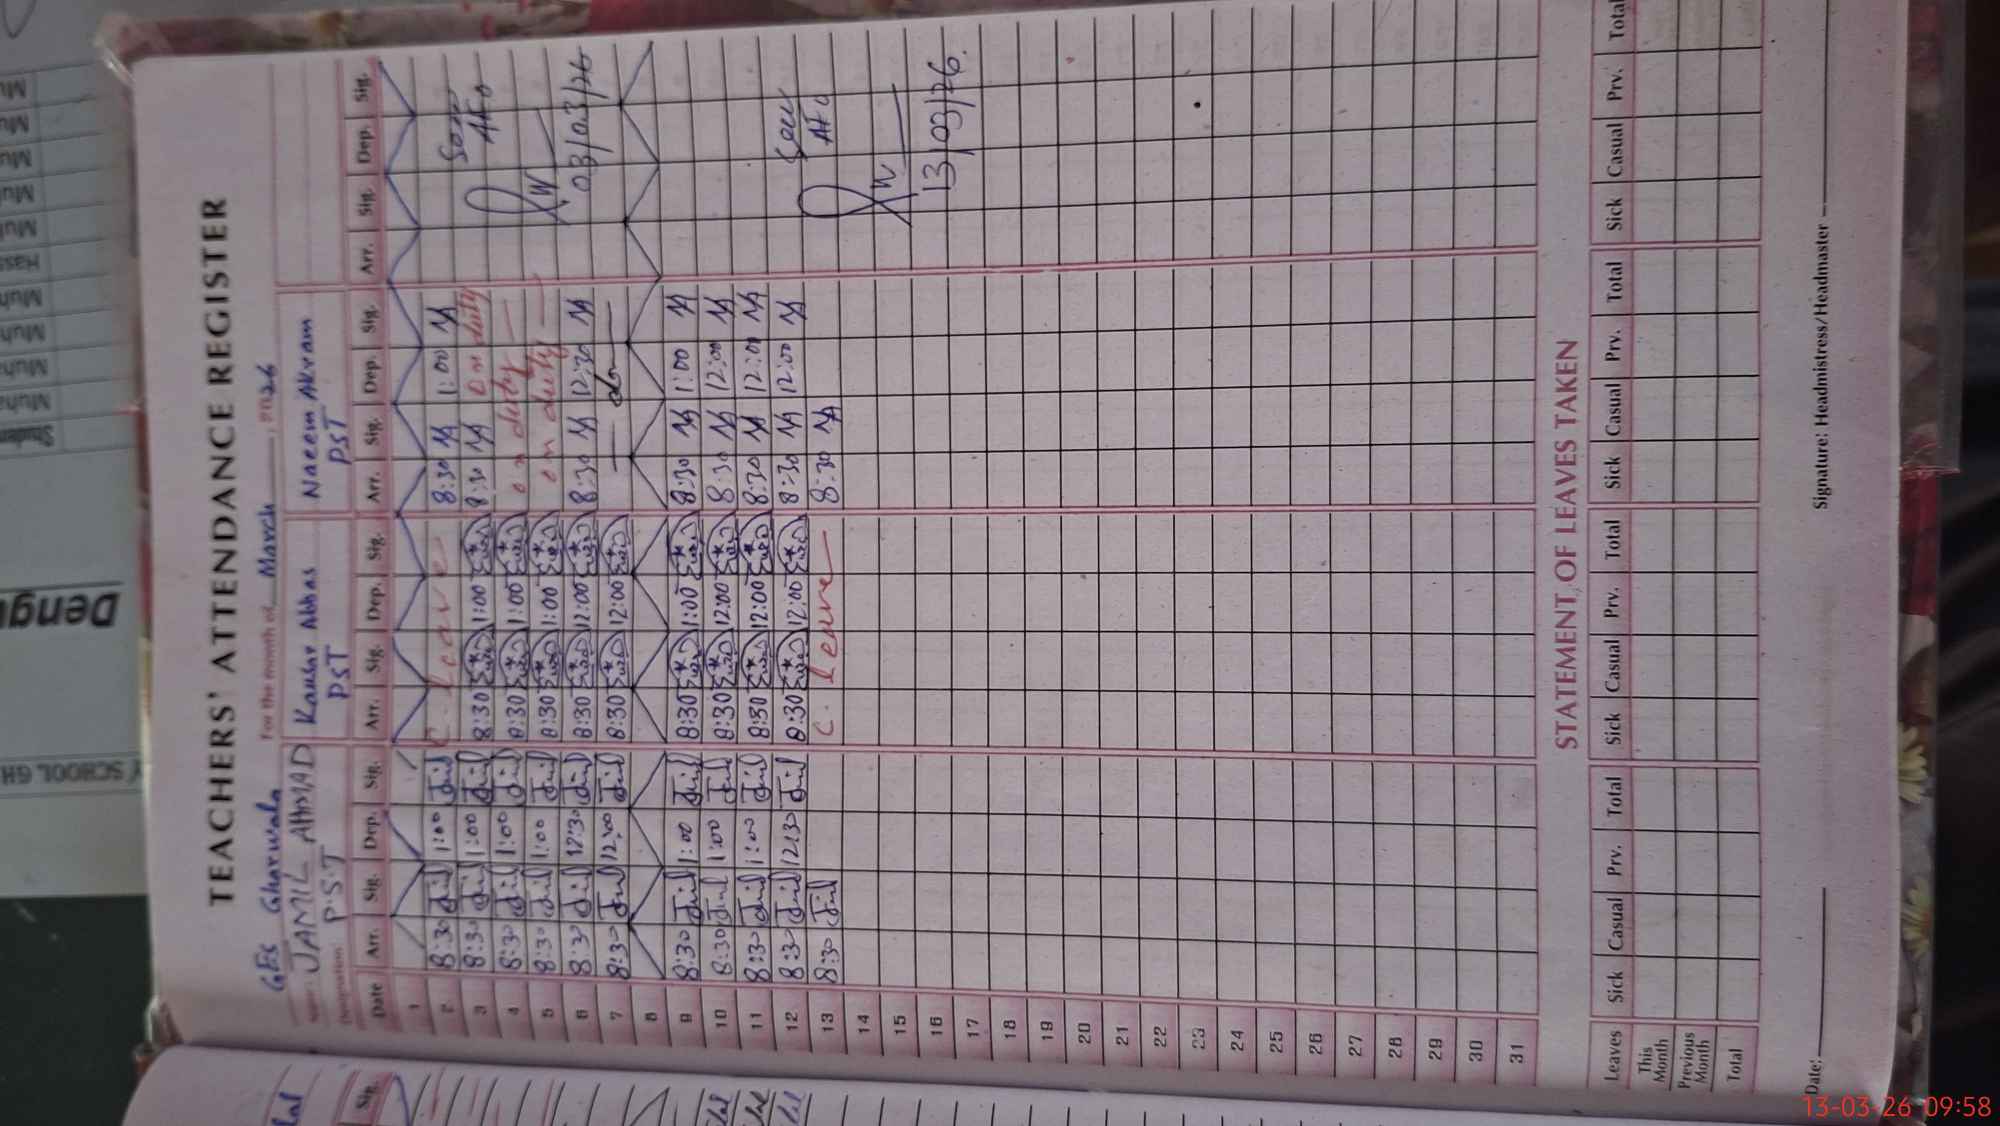 TEACHERS' ATTENDANCE REGISTER
GES Gharwala For the month of March, 2026
Name: JAMIL AHMAD Kausar Abbas Naeem Akram
Designation: P.S.T PST PST
Date Arr. Sig. Dep. Sig. Arr. Sig. Dep. Sig. Arr. Sig. Dep. Sig. Arr. Sig. Dep. Sig.
1
2 8:30 1:00 C. Leave 8:30 1:00
3 8:30 1:00 8:30 1:00 8:30 on duty
4 8:30 1:00 8:30 1:00 on duty
5 8:30 1:00 8:30 1:00 on duty
6 8:30 12:30 8:30 12:00 8:30 12:30
7 8:30 12:00 8:30 12:00 do
8
9 8:30 1:00 8:30 1:00 8:30 1:00
10 8:30 1:00 8:30 12:00 8:30 12:00
11 8:30 1:00 8:30 12:00 8:30 12:00
12 8:30 12:30 8:30 12:00 8:30 12:00
13 8:30 C. leave 8:30
14
15
16
17
18
19
20
21
22
23
24
25
26
27
28
29
30
31
Seen
AEO
03/03/26
Seen
AEO
13/03/26.
STATEMENT OF LEAVES TAKEN
Leaves Sick Casual Prv. Total Sick Casual Prv. Total Sick Casual Prv. Total Sick Casual Prv. Total
This Month
Previous Month
Total
Date: Signature: Headmistress/Headmaster
Sig.
Deng
SCHOOL GH
Studen
13-03-26 09:58